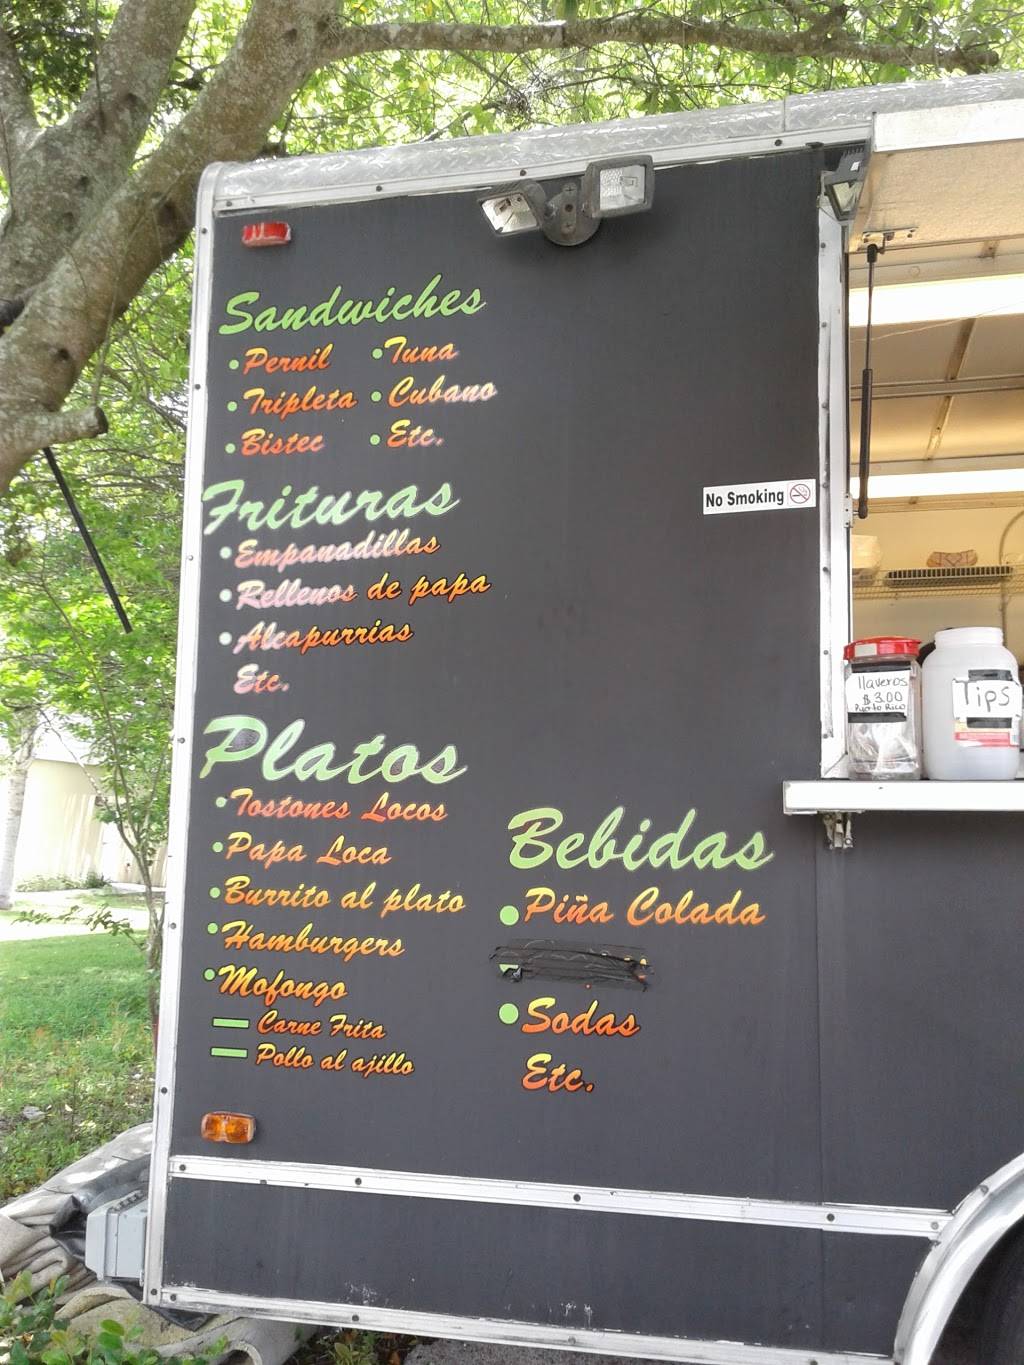 Sandwiches
• Pernil • Tuna
• Tripleta • Cubano
• Bistec • Etc.
Frituras
• Empanadillas
• Rellenos de papa
• Alcapurrias
Etc.
Platos
• Tostones Locos
• Papa Loca
• Burrito al plato
• Hamburgers
• Mofongo
— Carne Frita
— Pollo al ajillo
Bebidas
• Piña Colada
• Sodas
Etc.
No Smoking
llaveros
$3.00
Puerto Rico
Tips